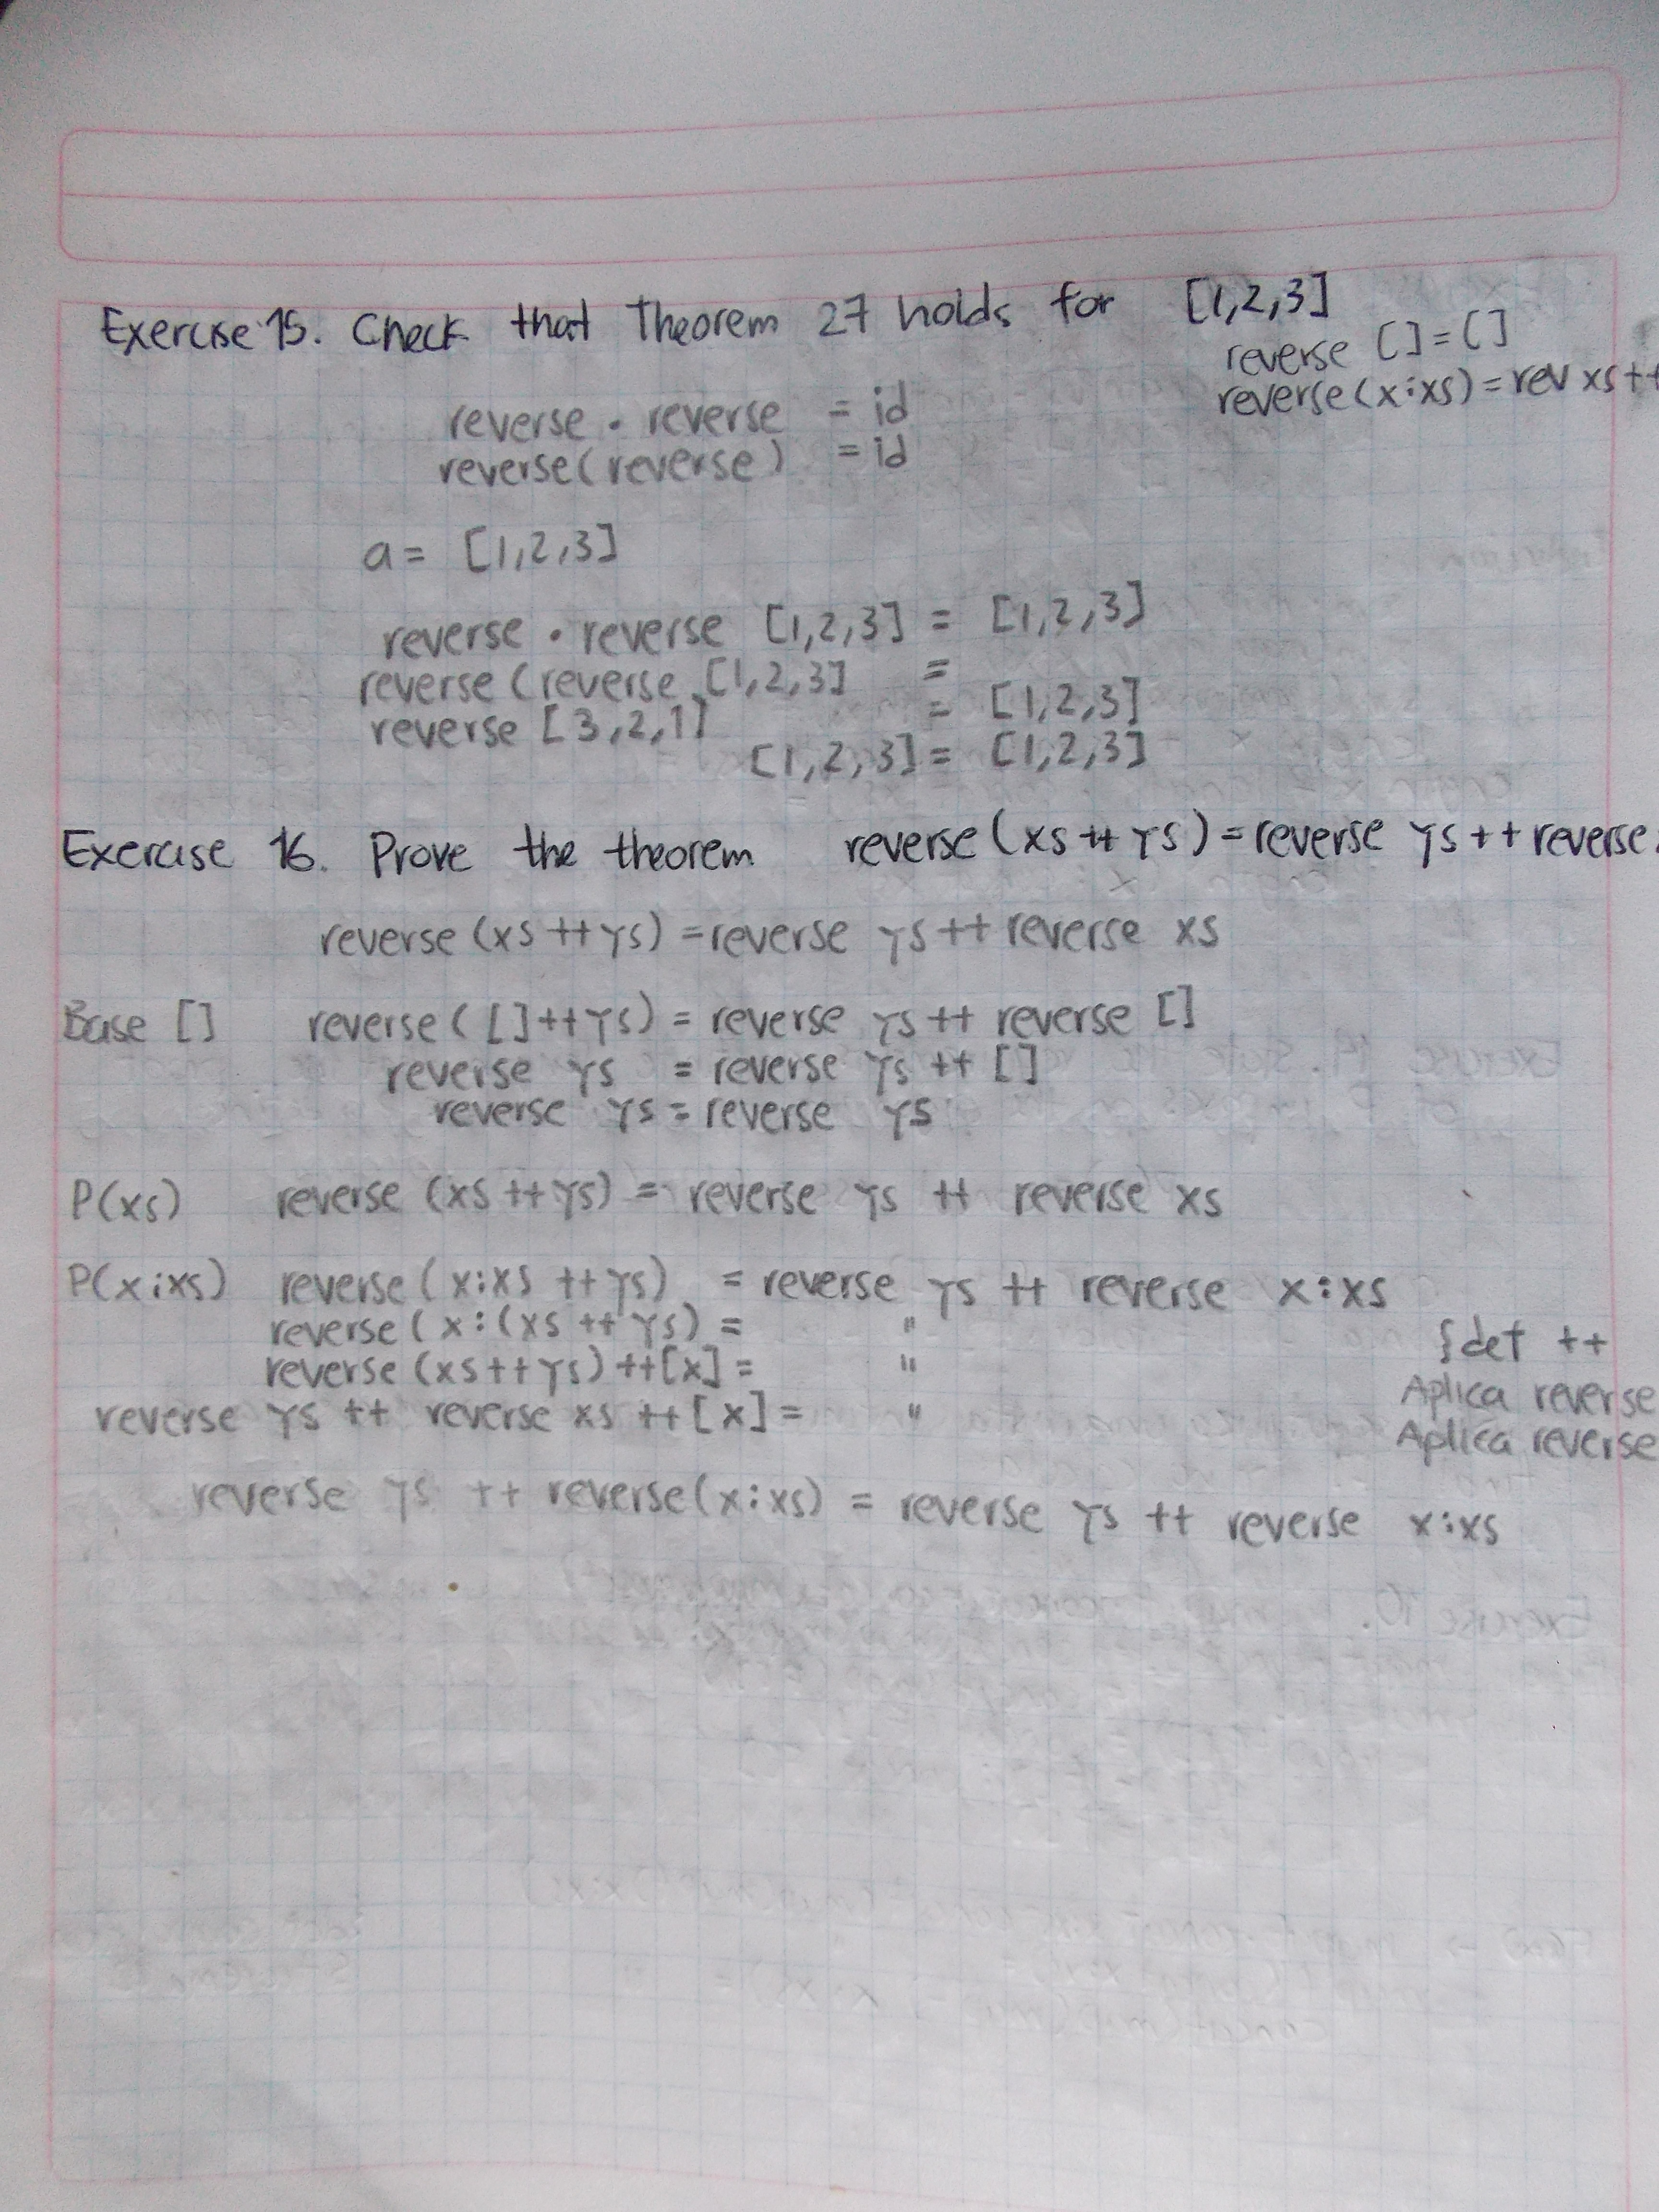 Exercise 15. Check that Theorem 27 holds for [1,2,3]
reverse []=[]
reverse(x:xs)=rev xs++
reverse . reverse = id
reverse(reverse) = id
a= [1,2,3]
reverse . reverse [1,2,3] = [1,2,3]
reverse (reverse [1,2,3] =
reverse [3,2,1] = [1,2,3]
[1,2,3] = [1,2,3]
Exercise 16. Prove the theorem reverse (xs ++ ys)=reverse ys++reverse
reverse (xs ++ ys) =reverse ys ++ reverse xs
Base [] reverse ( []++ys) = reverse ys ++ reverse []
reverse ys = reverse ys ++ []
reverse ys = reverse ys
P(xs) reverse (xs ++ ys) = reverse ys ++ reverse xs
P(x:xs) reverse ( x:xs ++ ys) = reverse ys ++ reverse x:xs
reverse ( x : (xs ++ ys) = " {def ++
reverse (xs++ys) ++[x] = " Aplica reverse
reverse ys ++ reverse xs ++[x] = " Aplica reverse
reverse ys ++ reverse(x:xs) = reverse ys ++ reverse x:xs